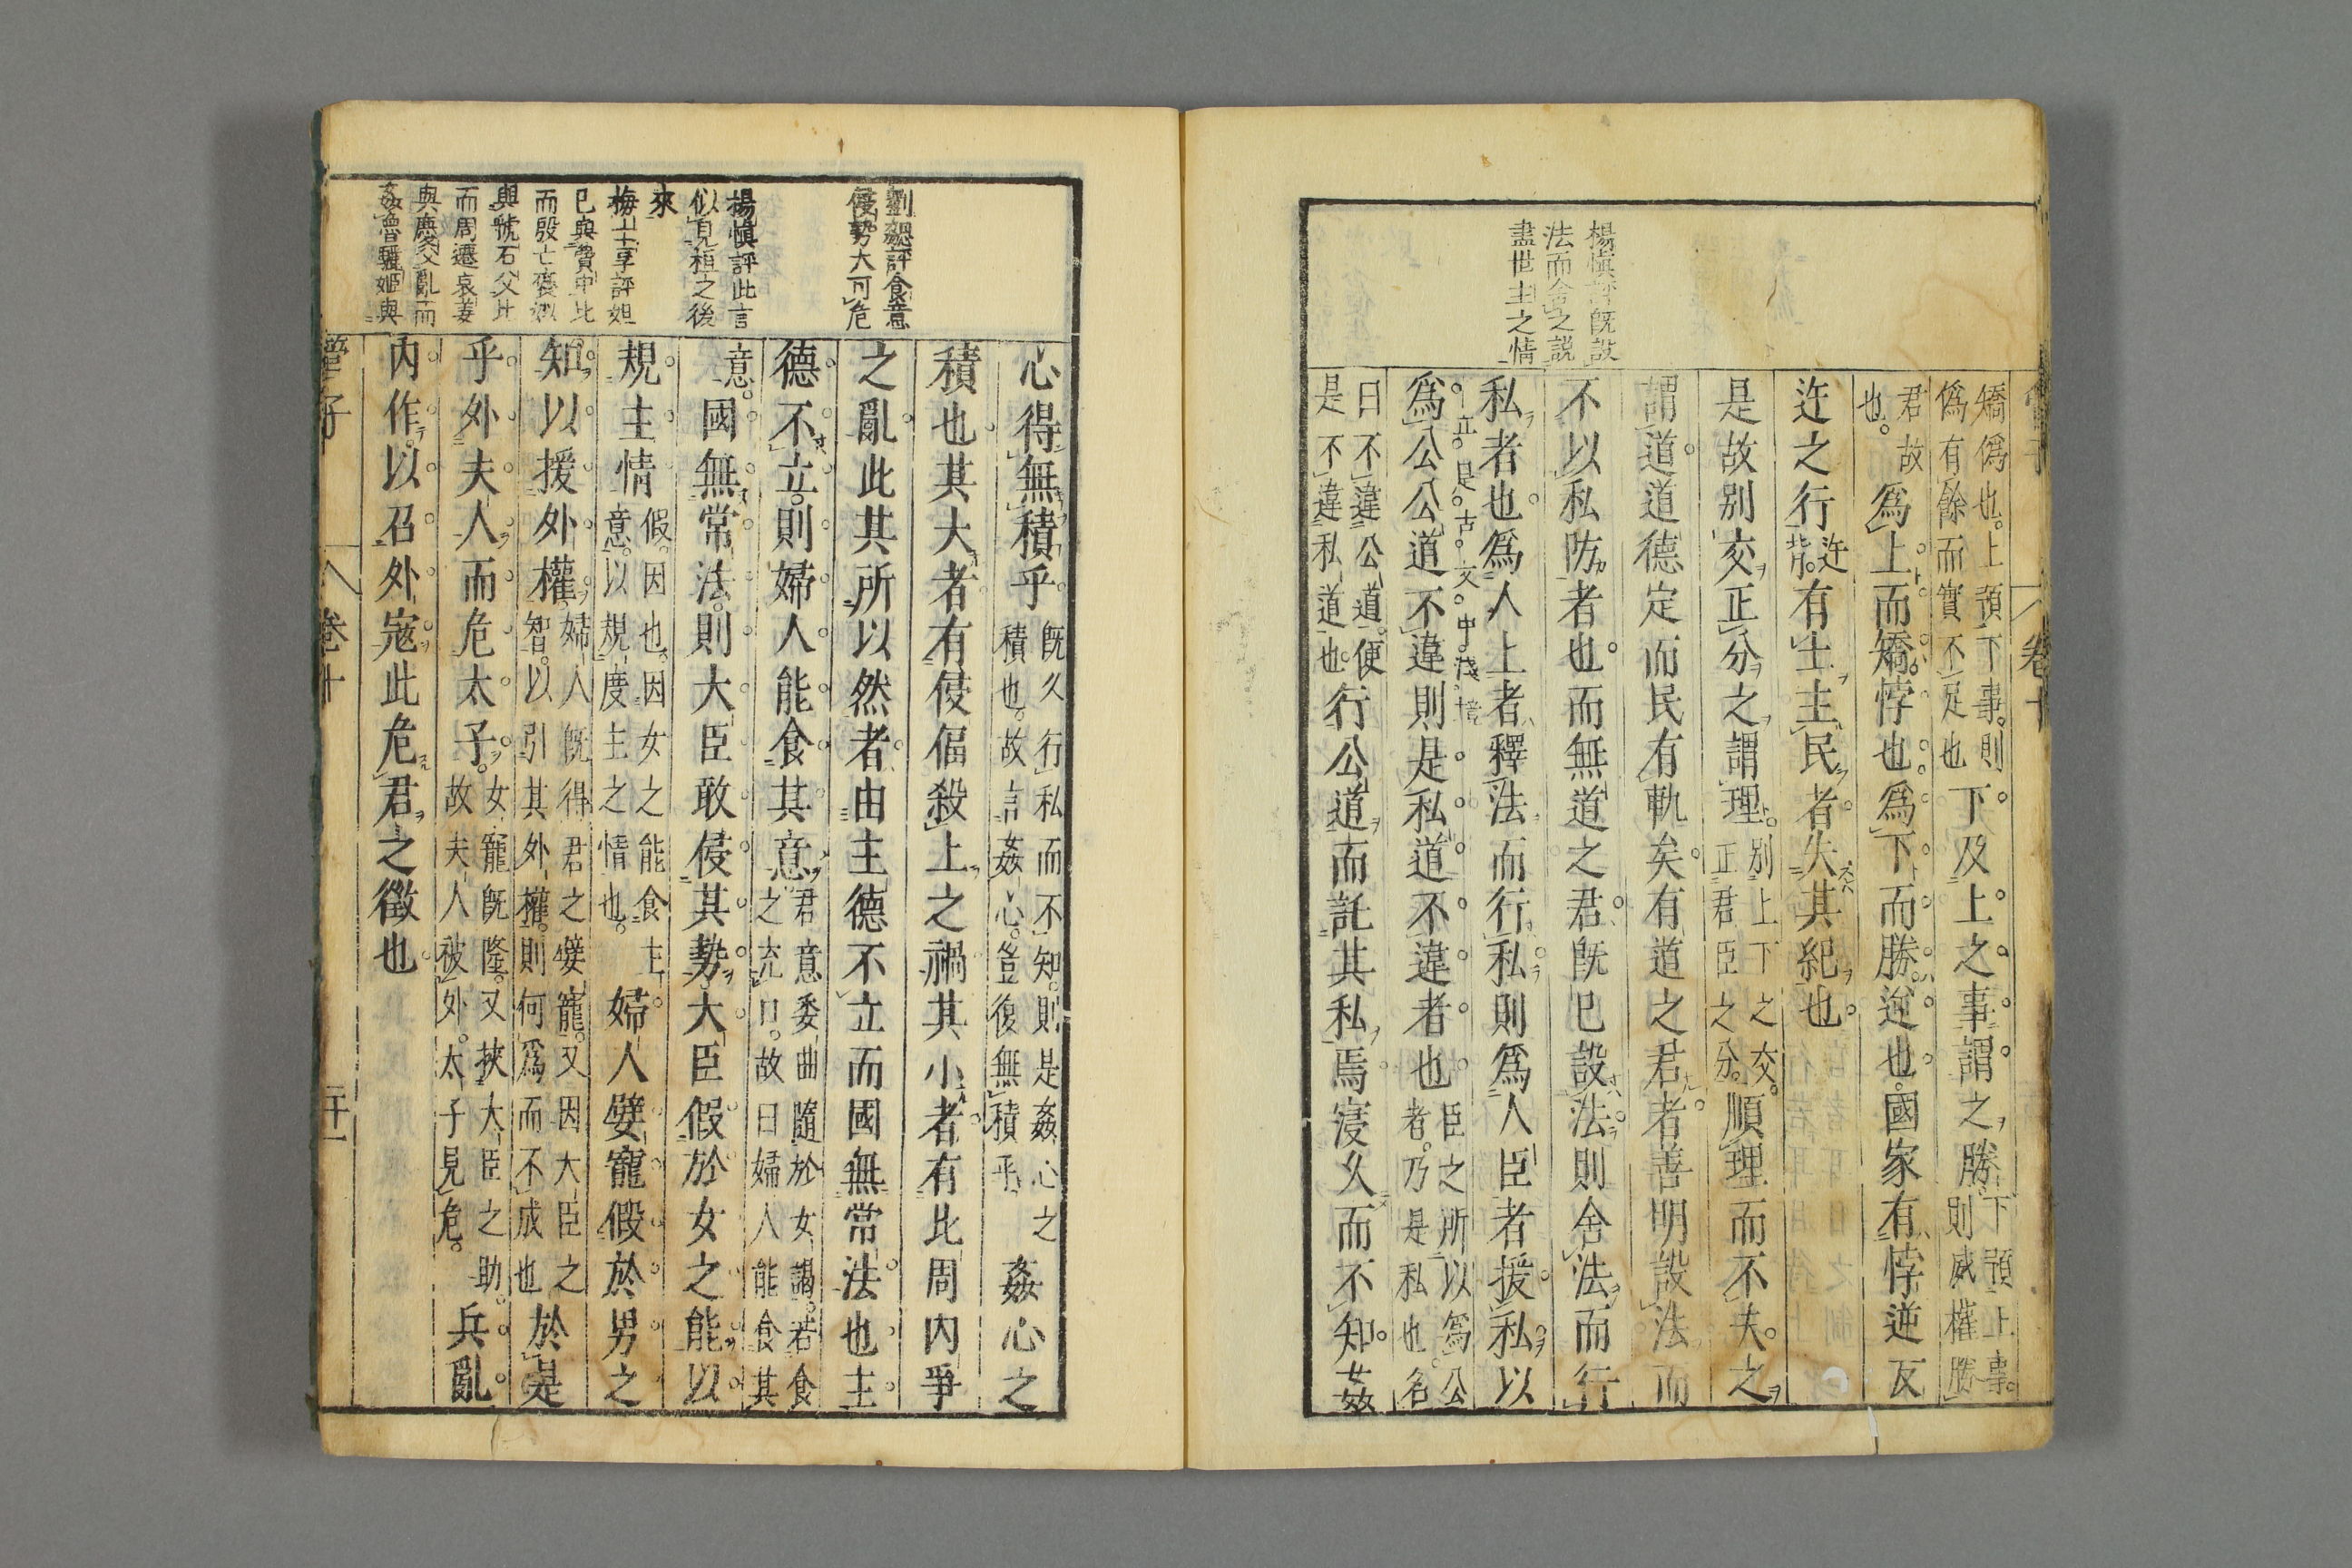 楊慎評既設
法而舍之説
盡世主之情
矯偽也。上預下事。則
偽有餘而實不足也
下及上之事謂之勝
下預上事。
則威權勝
君故
也。
爲上而矯悖也爲下而勝逆也國家有悖逆反
迕之行
迕
背。
有土主民者失其紀也
是故別交正分之謂理
別上下之交。
正君臣之分。
順理而不失之
謂道道德定而民有軌矣有道之君者善明設法而
不以私防者也而無道之君既已設法則舍法而行
私者也爲人上者釋法而行私則爲人臣者援私以
爲公公道不違則是私道不違者也
臣之所以爲公
者。乃是私也。名
立。是。古。文。中
曰不違公道。便
是不違私道也。
行公道而託其私焉寖久而不知姦
管子
卷十
劉勰評食意
侵勢大可危
楊慎評此言
似見桓之後
來
梅士享評妲
已與費中比
而殷亡褒姒
與虢石父比
而周遷哀姜
與慶父亂而
姦魯驪姬與
心得無積乎
既久行私而不知。則是姦心之
積也。故言姦心。豈復無積乎
姦心之
積也其大者有侵偪殺上之禍其小者有比周内爭
之亂此其所以然者由主德不立而國無常法也主
德不立。則婦人能食其意
君意委曲隨於女謁。若食
之充口。故曰婦人能食其
意。
國無常法。則大臣敢侵其勢大臣假於女之能以
規主情
假。因也。因女之能食主
意。以規度主之情也。
婦人嬖寵假於男之
知以援外權
婦人既得君之嬖寵。又因大臣之
智。以引其外權。則何爲而不成也
於是
乎外夫人而危太子
女寵既隆。又挾大臣之助。
故夫人被外。太子見危。
兵亂
内作。以召外寇此危君之徵也
管子
卷十